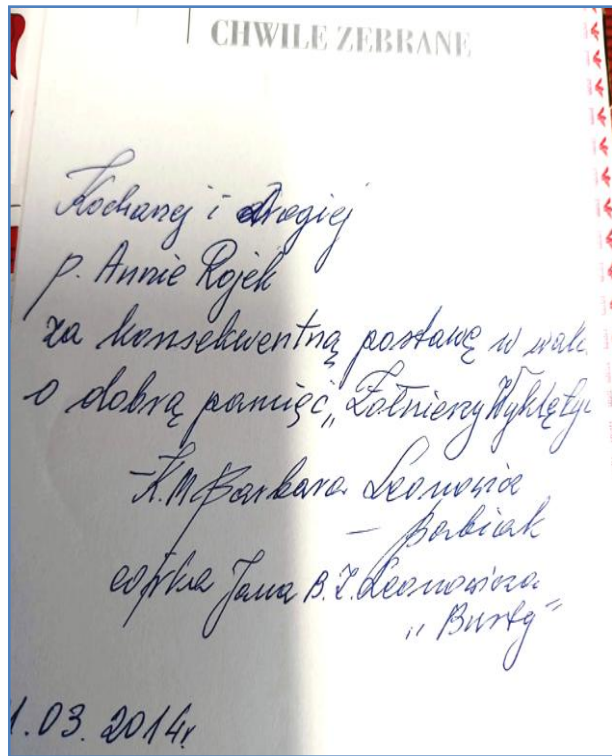 CHWILE ZEBRANE
Kochanej i drogiej
p. Annie Rojek
za konsekwentną postawę w walc
o dobrą pamięć „Żołnierzy Wyklęty
– K. M Barbara Leonowicz
– Babiak
córka Jana B. L. Leonowicza
„Burty”
1.03.2014r